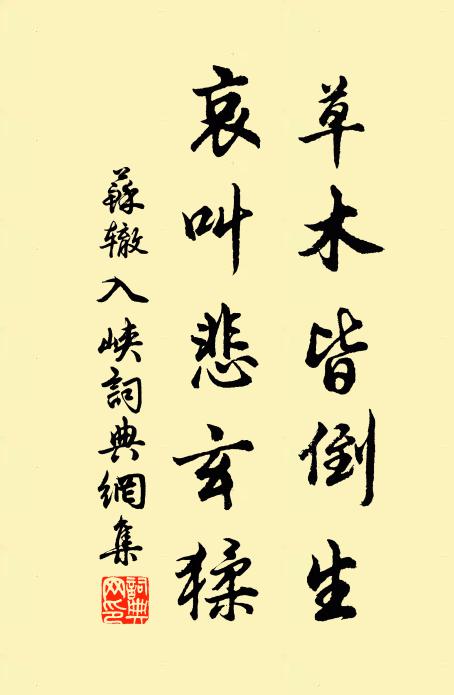 草木皆倒生
哀叫悲玄猱
蘇辙入峽詞典網集
詞典網印